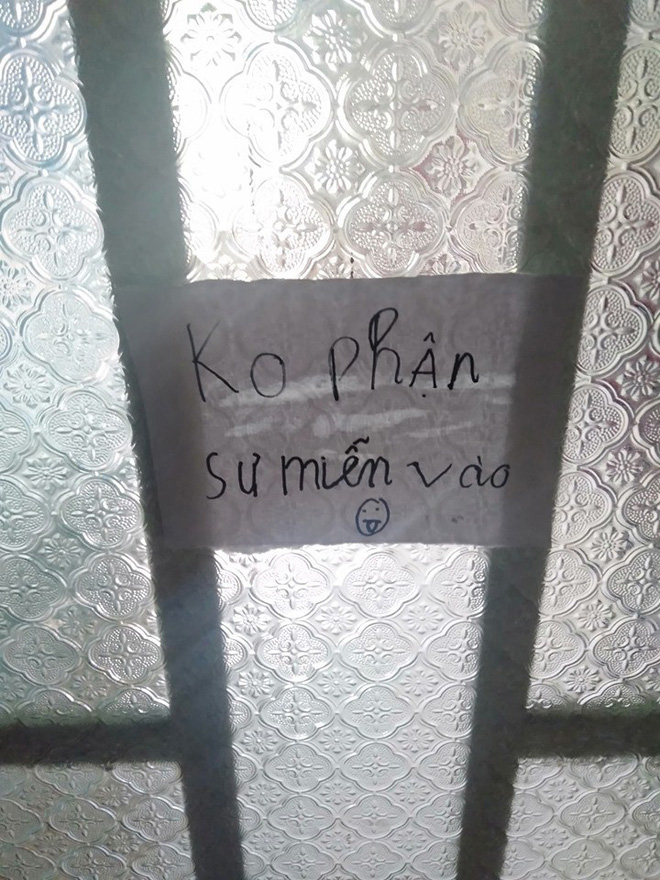 Ko phận
sự miễn vào